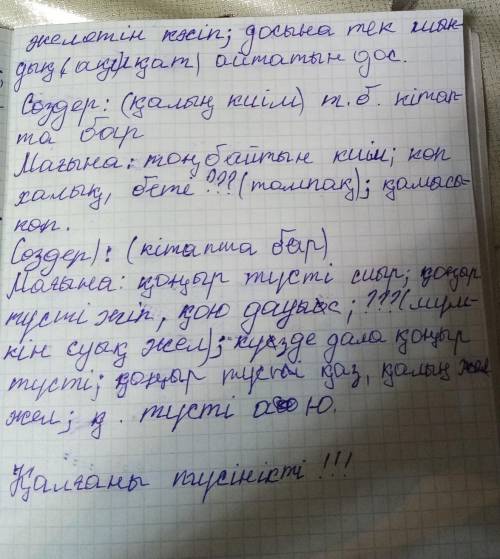 желетін кәсіп; досына тек шын-
дық (ақиқат) айтатын дос.
Сөздер: (қалың киім) т.б. кітап-
та бар
Мағына: тоңбайтын киім; көп
халық, бете ??? (томпақ); қамысы
көп.
Сөздер): (кітапта бар)
Мағына: қоңыр түсті сиыр; қоңыр
түсті жіп, қою дауыс; ??? (мүм-
кін суық жел); күзде дала қоңыр
түсті; қоңыр түсті қаз, қалың жел
жел; қ. түсті аю.
Қалғаны түсінікті!!!